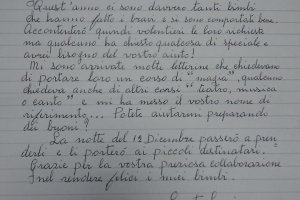 Quest'anno ci sono davvero tanti bimbi
che hanno fatto i bravi e si sono comportati bene.
Accontenterò quindi volentieri le loro richieste
ma qualcuno ha chiesto qualcosa di speciale e
avrei bisogno del vostro aiuto!
Mi sono arrivate molte letterine che chiedevano
di portare loro un corso di "magia", qualcuno
chiedeva anche di altri corsi "teatro, musica
o canto" e mi ha messo il vostro nome di
riferimento... Potete aiutarmi preparando
dei buoni?
La notte del 12 Dicembre passerò a pren
derli e li porterò ai piccoli destinatari.
Grazie per la vostra preziosa collaborazione
nel rendere felici i miei bimbi.